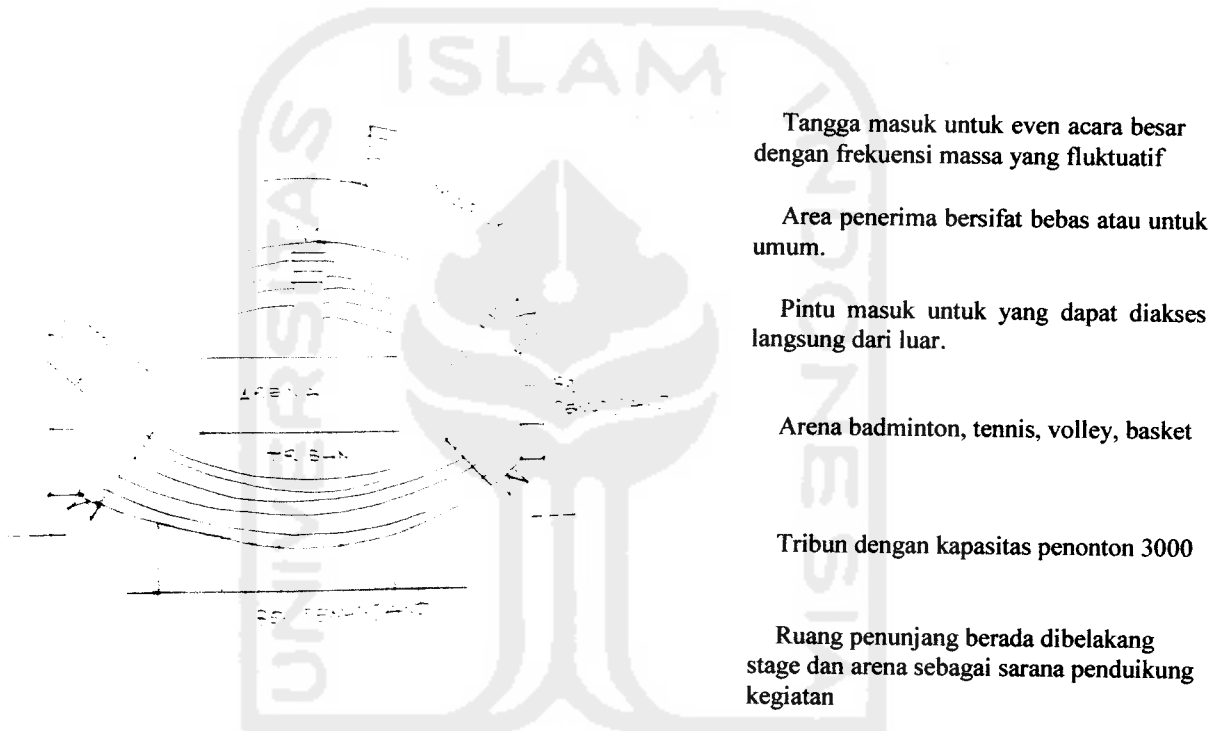 UNIVERSITAS
ISLAM
INDONESIA
ARENA
TRIBUN
Tangga masuk untuk even acara besar
dengan frekuensi massa yang fluktuatif
Area penerima bersifat bebas atau untuk
umum.
Pintu masuk untuk yang dapat diakses
langsung dari luar.
Arena badminton, tennis, volley, basket
Tribun dengan kapasitas penonton 3000
Ruang penunjang berada dibelakang
stage dan arena sebagai sarana penduikung
kegiatan